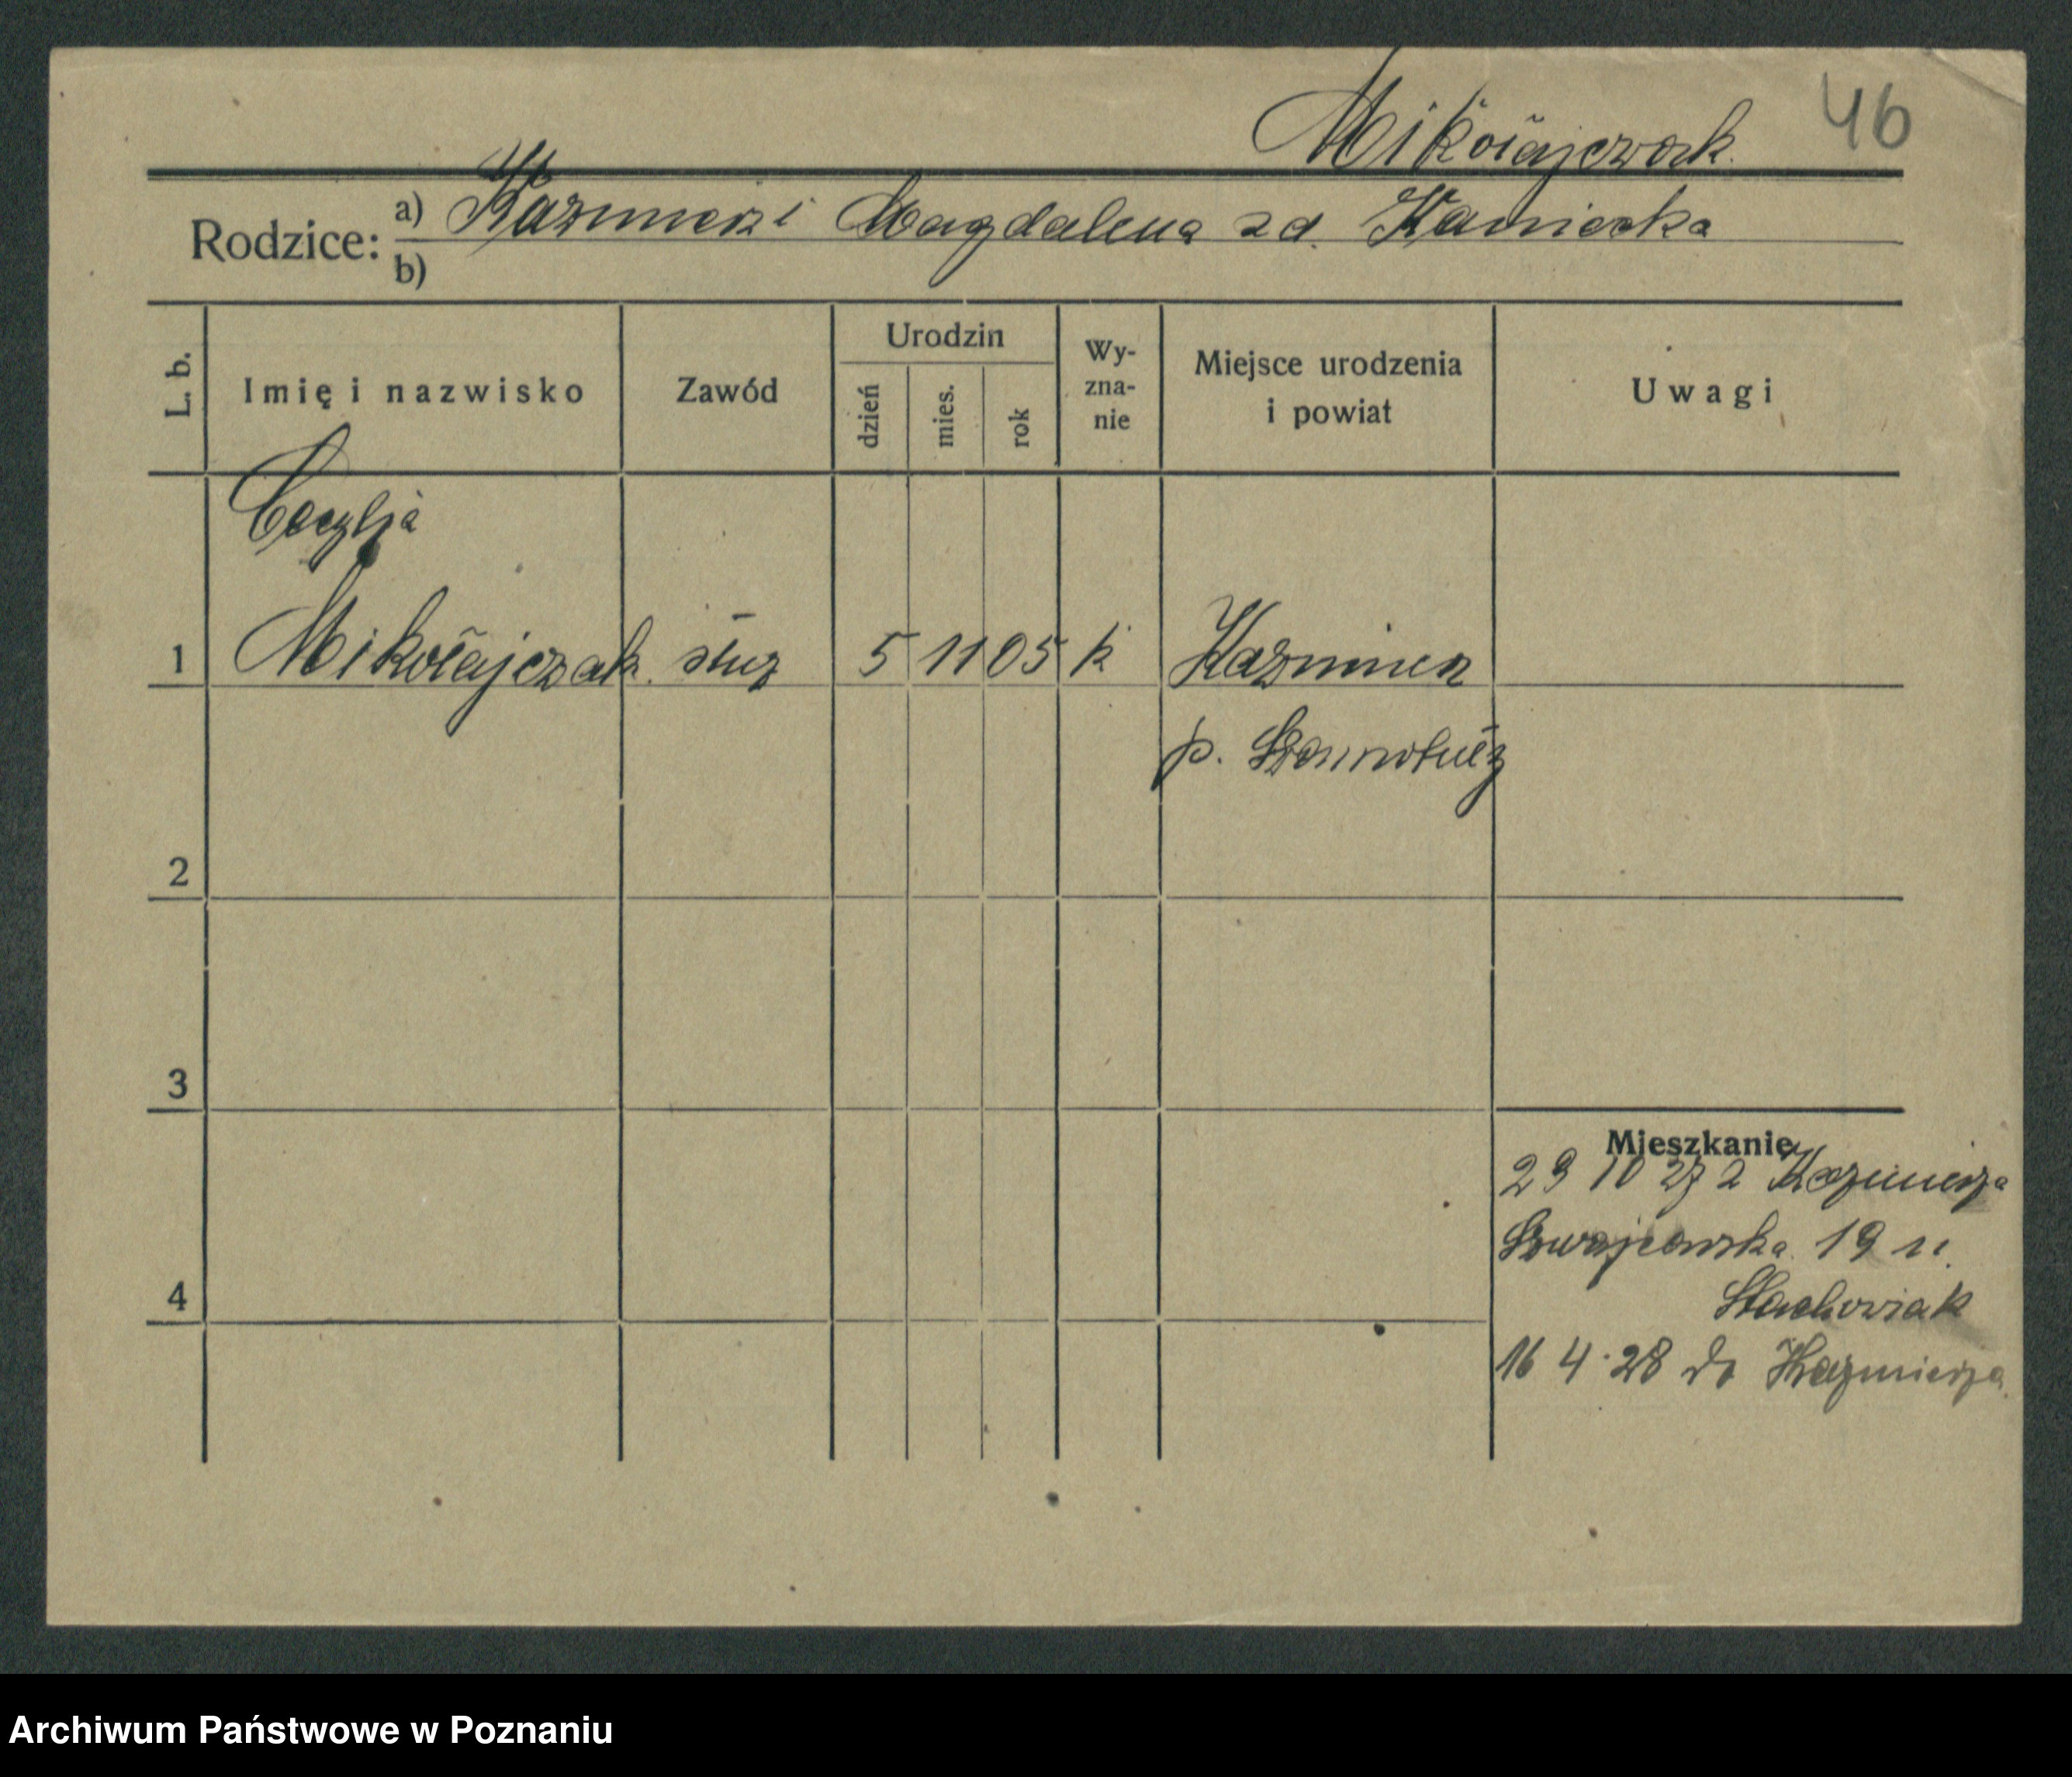 Mikołajczak 46
Rodzice: a) Kazimierz i Magdalena zd. Kaniecka
b)
L. b. Imię i nazwisko Zawód Urodzin dzień mies. rok Wy- zna- nie Miejsce urodzenia i powiat Uwagi
Cecylja
1 Mikołajczak służ 5 11 05 k Kazmierz
p. Szamotuły
2
3
Mieszkanie
29 10 27 z Kazmierza
Szwajcarska 19 u.
4 Stachowiak
16 4 28 do Kazmierza
Archiwum Państwowe w Poznaniu